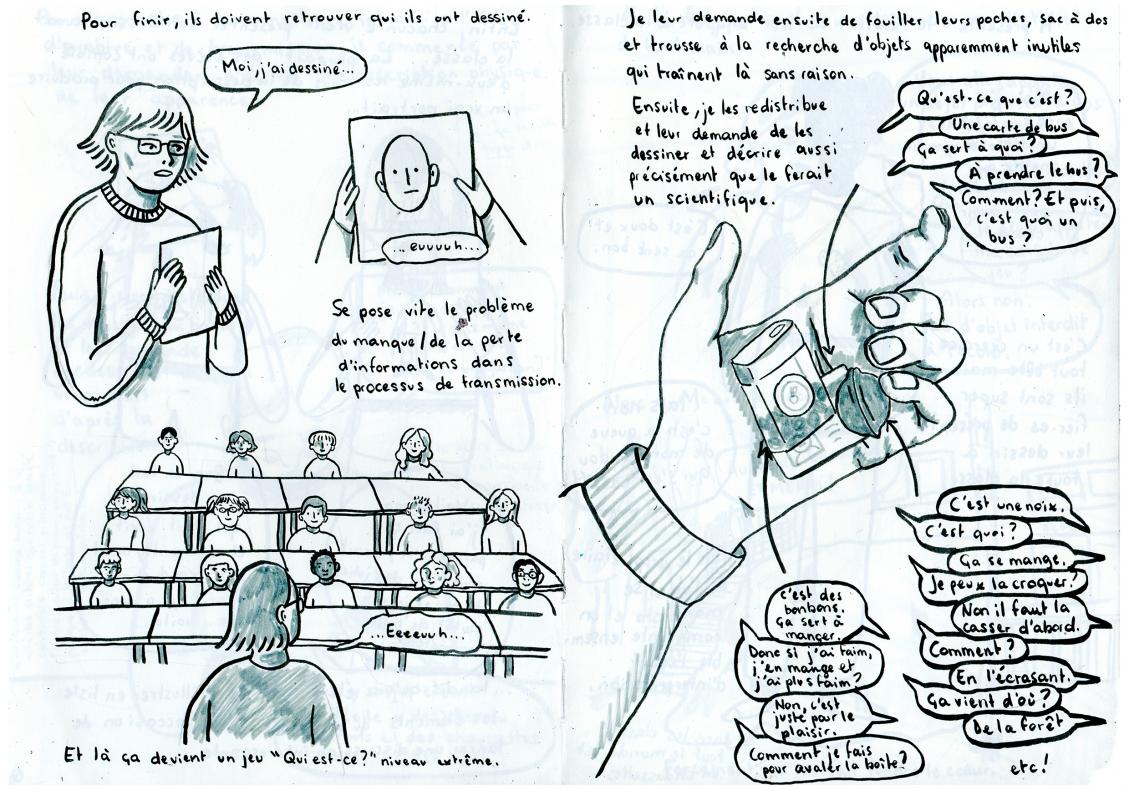 Pour finir, ils doivent retrouver qui ils ont dessiné.
Moi, j'ai dessiné...
...euuuuh...
Se pose vite le problème
du manque/de la perte
d'informations dans
le processus de transmission.
...Eeeeuuh...
Et là ça devient un jeu "Qui est-ce?" niveau extrême.
Je leur demande ensuite de fouiller leurs poches, sac à dos
et trousse à la recherche d'objets apparemment inutiles
qui traînent là sans raison.
Ensuite, je les redistribue
et leur demande de les
dessiner et décrire aussi
précisément que le ferait
un scientifique.
Qu'est-ce que c'est?
Une carte de bus
Ça sert à quoi?
À prendre le bus?
Comment? Et puis,
c'est quoi un
bus?
c'est des
bonbons.
Ça sert à
manger.
Donc si j'ai faim,
j'en mange et
j'ai plus faim?
Non, c'est
juste pour le
plaisir.
Comment je fais
pour avaler la boîte?
C'est une noix.
C'est quoi?
Ça se mange.
Je peux la croquer?
Non il faut la
casser d'abord.
Comment?
En l'écrasant.
Ça vient d'où?
De la forêt
etc!